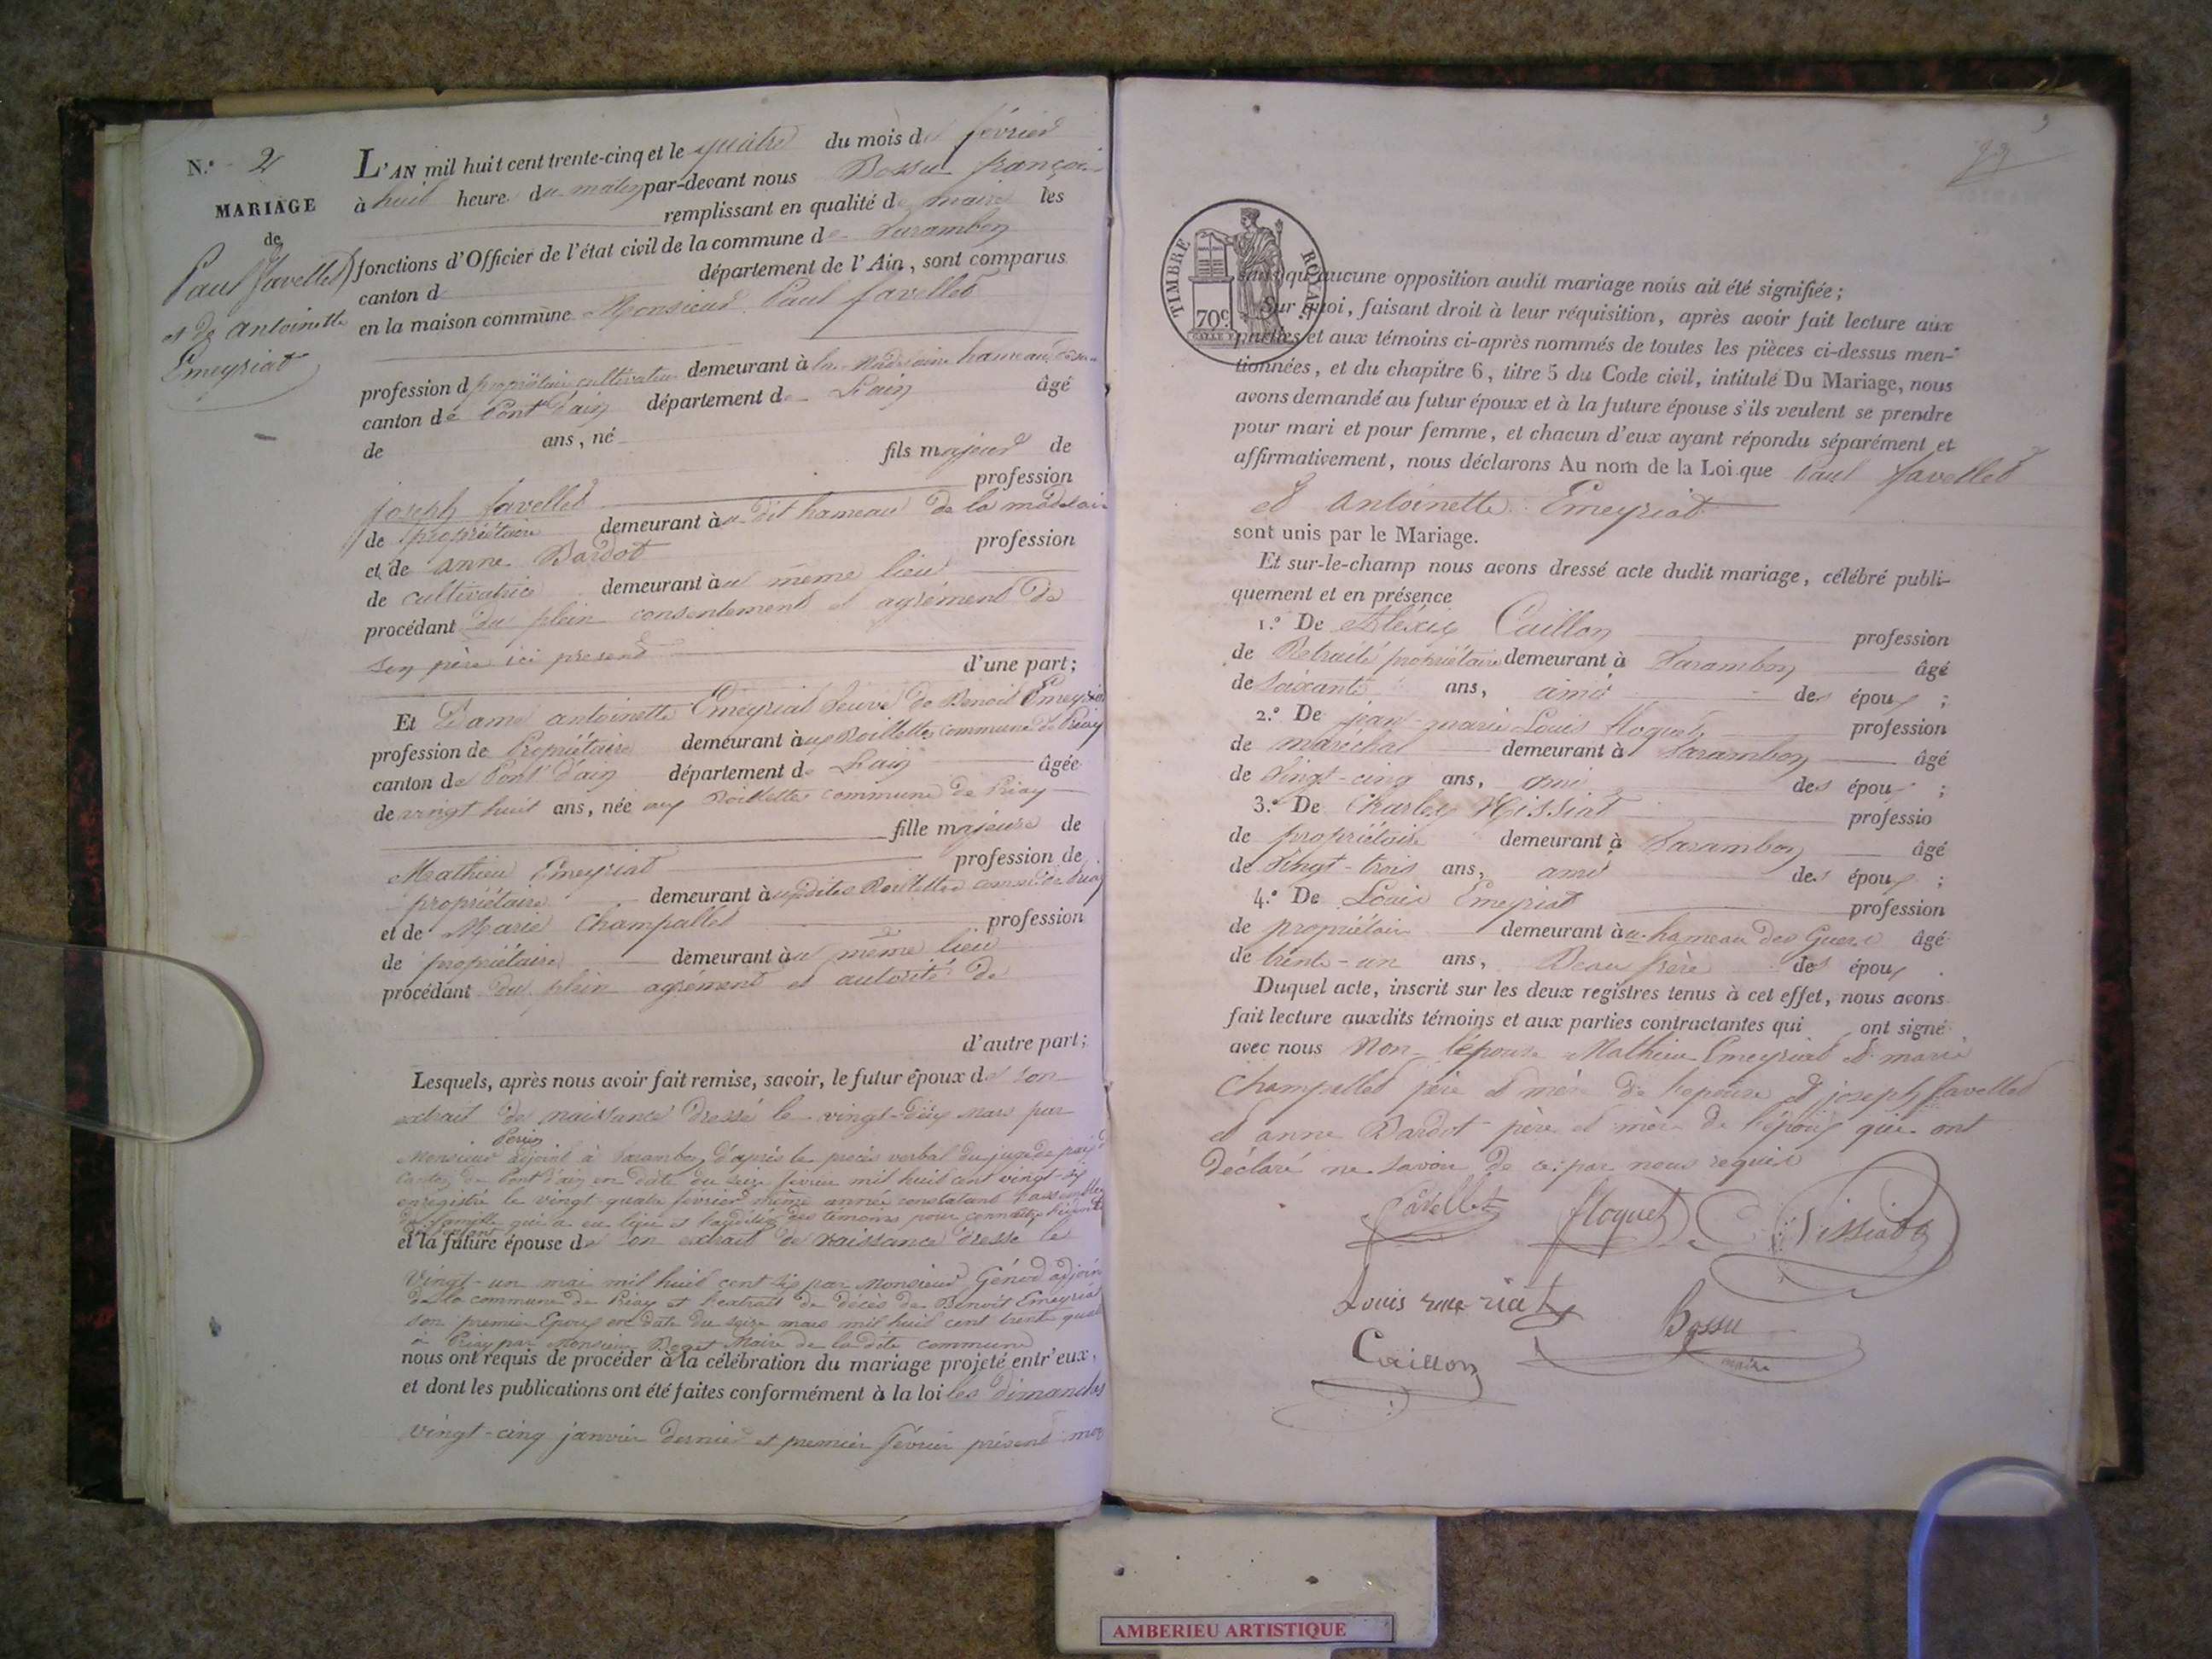 N.° 2
MARIAGE
de
Paul Favellet
et de Antoinette
Emeyriat
L'AN mil huit cent trente-cinq et le quatre du mois de février
à huit heure du matin par-devant nous Bossu françois
remplissant en qualité de maire les
fonctions d'Officier de l'état civil de la commune de Varambon
canton d département de l'Ain, sont comparus
en la maison commune Monsieur Paul favellet
profession d propriétaire cultivateur demeurant à la Madelaine hameau
canton de Pont d'ain département de L'ain âgé
de ans, né
fils majeur de
joseph favellet profession
de propriétaire demeurant au dit hameau de la madelaine
et de anne Bardot profession
de cultivatrice demeurant au même lieu
procédant du plein consentement et agrément de
son père ici présent
d'une part;
Et Dame antoinette Emeyriat veuve de Benoit Emeyriat
profession de Propriétaire demeurant aux Boillettes commune de Priay
canton de Pont d'ain département de L'ain âgée
de vingt huit ans, née aux Boillettes commune de Priay
fille majeure de
Mathieu Emeyriat profession de
propriétaire demeurant auxdites Boillettes commune de Priay
et de Marie Champallet profession
de propriétaire demeurant au même lieu
procédant du plein agrément et autorité de
d'autre part;
Lesquels, après nous avoir fait remise, savoir, le futur époux de son
extrait de naissance dressé le vingt-deux mars par
Perrin
Monsieur adjoint à Varambon, d'après le procès verbal du juge de paix
canton de Pont d'ain en date du seize février mil huit cent vingt-six
enregistré le vingt-quatre février même année constatant l'assemblée
de famille qui a eu lieu et l'audition des témoins pour connaitre
et la future épouse de son extrait de naissance dressé le
vingt-un mai mil huit cent six par Monsieur Génod adjoint
de la commune de Priay et l'extrait de décès de Benoit Emeyriat
son premier Epoux en date du seize mars mil huit cent trente quatre
à Priay par Monsieur Maire de la dite commune
nous ont requis de procéder à la célébration du mariage projeté entr'eux,
et dont les publications ont été faites conformément à la loi les dimanches
vingt-cinq janvier dernier et premier février présent mois
TIMBRE ROYAL
70c.
sans qu'aucune opposition audit mariage nous ait été signifiée;
Sur quoi, faisant droit à leur réquisition, après avoir fait lecture aux
parties et aux témoins ci-après nommés de toutes les pièces ci-dessus men-
tionnées, et du chapitre 6, titre 5 du Code civil, intitulé Du Mariage, nous
avons demandé au futur époux et à la future épouse s'ils veulent se prendre
pour mari et pour femme, et chacun d'eux ayant répondu séparément et
affirmativement, nous déclarons Au nom de la Loi que Paul favellet
et Antoinette Emeyriat
sont unis par le Mariage.
Et sur-le-champ nous avons dressé acte dudit mariage, célébré publi-
quement et en présence
1.° De Aléxis Caillon profession
de Retraité propriétaire demeurant à Varambon âgé
de soixante ans, ami des époux ;
2.° De jean-marie Louis floquet profession
de maréchal demeurant à Varambon âgé
de vingt-cinq ans, ami des époux ;
3.° De Charles Nissiat professio
de propriétaire demeurant à Varambon âgé
de vingt-trois ans, ami des époux ;
4.° De Louis Emeyriat profession
de propriétaire demeurant au hameau des âgé
de trente-un ans, Beau frère des époux .
Duquel acte, inscrit sur les deux registres tenus à cet effet, nous avons
fait lecture auxdits témoins et aux parties contractantes qui ont signé
avec nous Non l'épouse Mathieu Emeyriat et marie
Champallet père et mère de l'épouse et joseph favellet
et anne Bardot père et mère de l'époux qui ont
déclaré ne savoir de ce par nous requis
favellet floquet C Nissiat
Louis
Bossu
maire
Caillon
AMBERIEU ARTISTIQUE